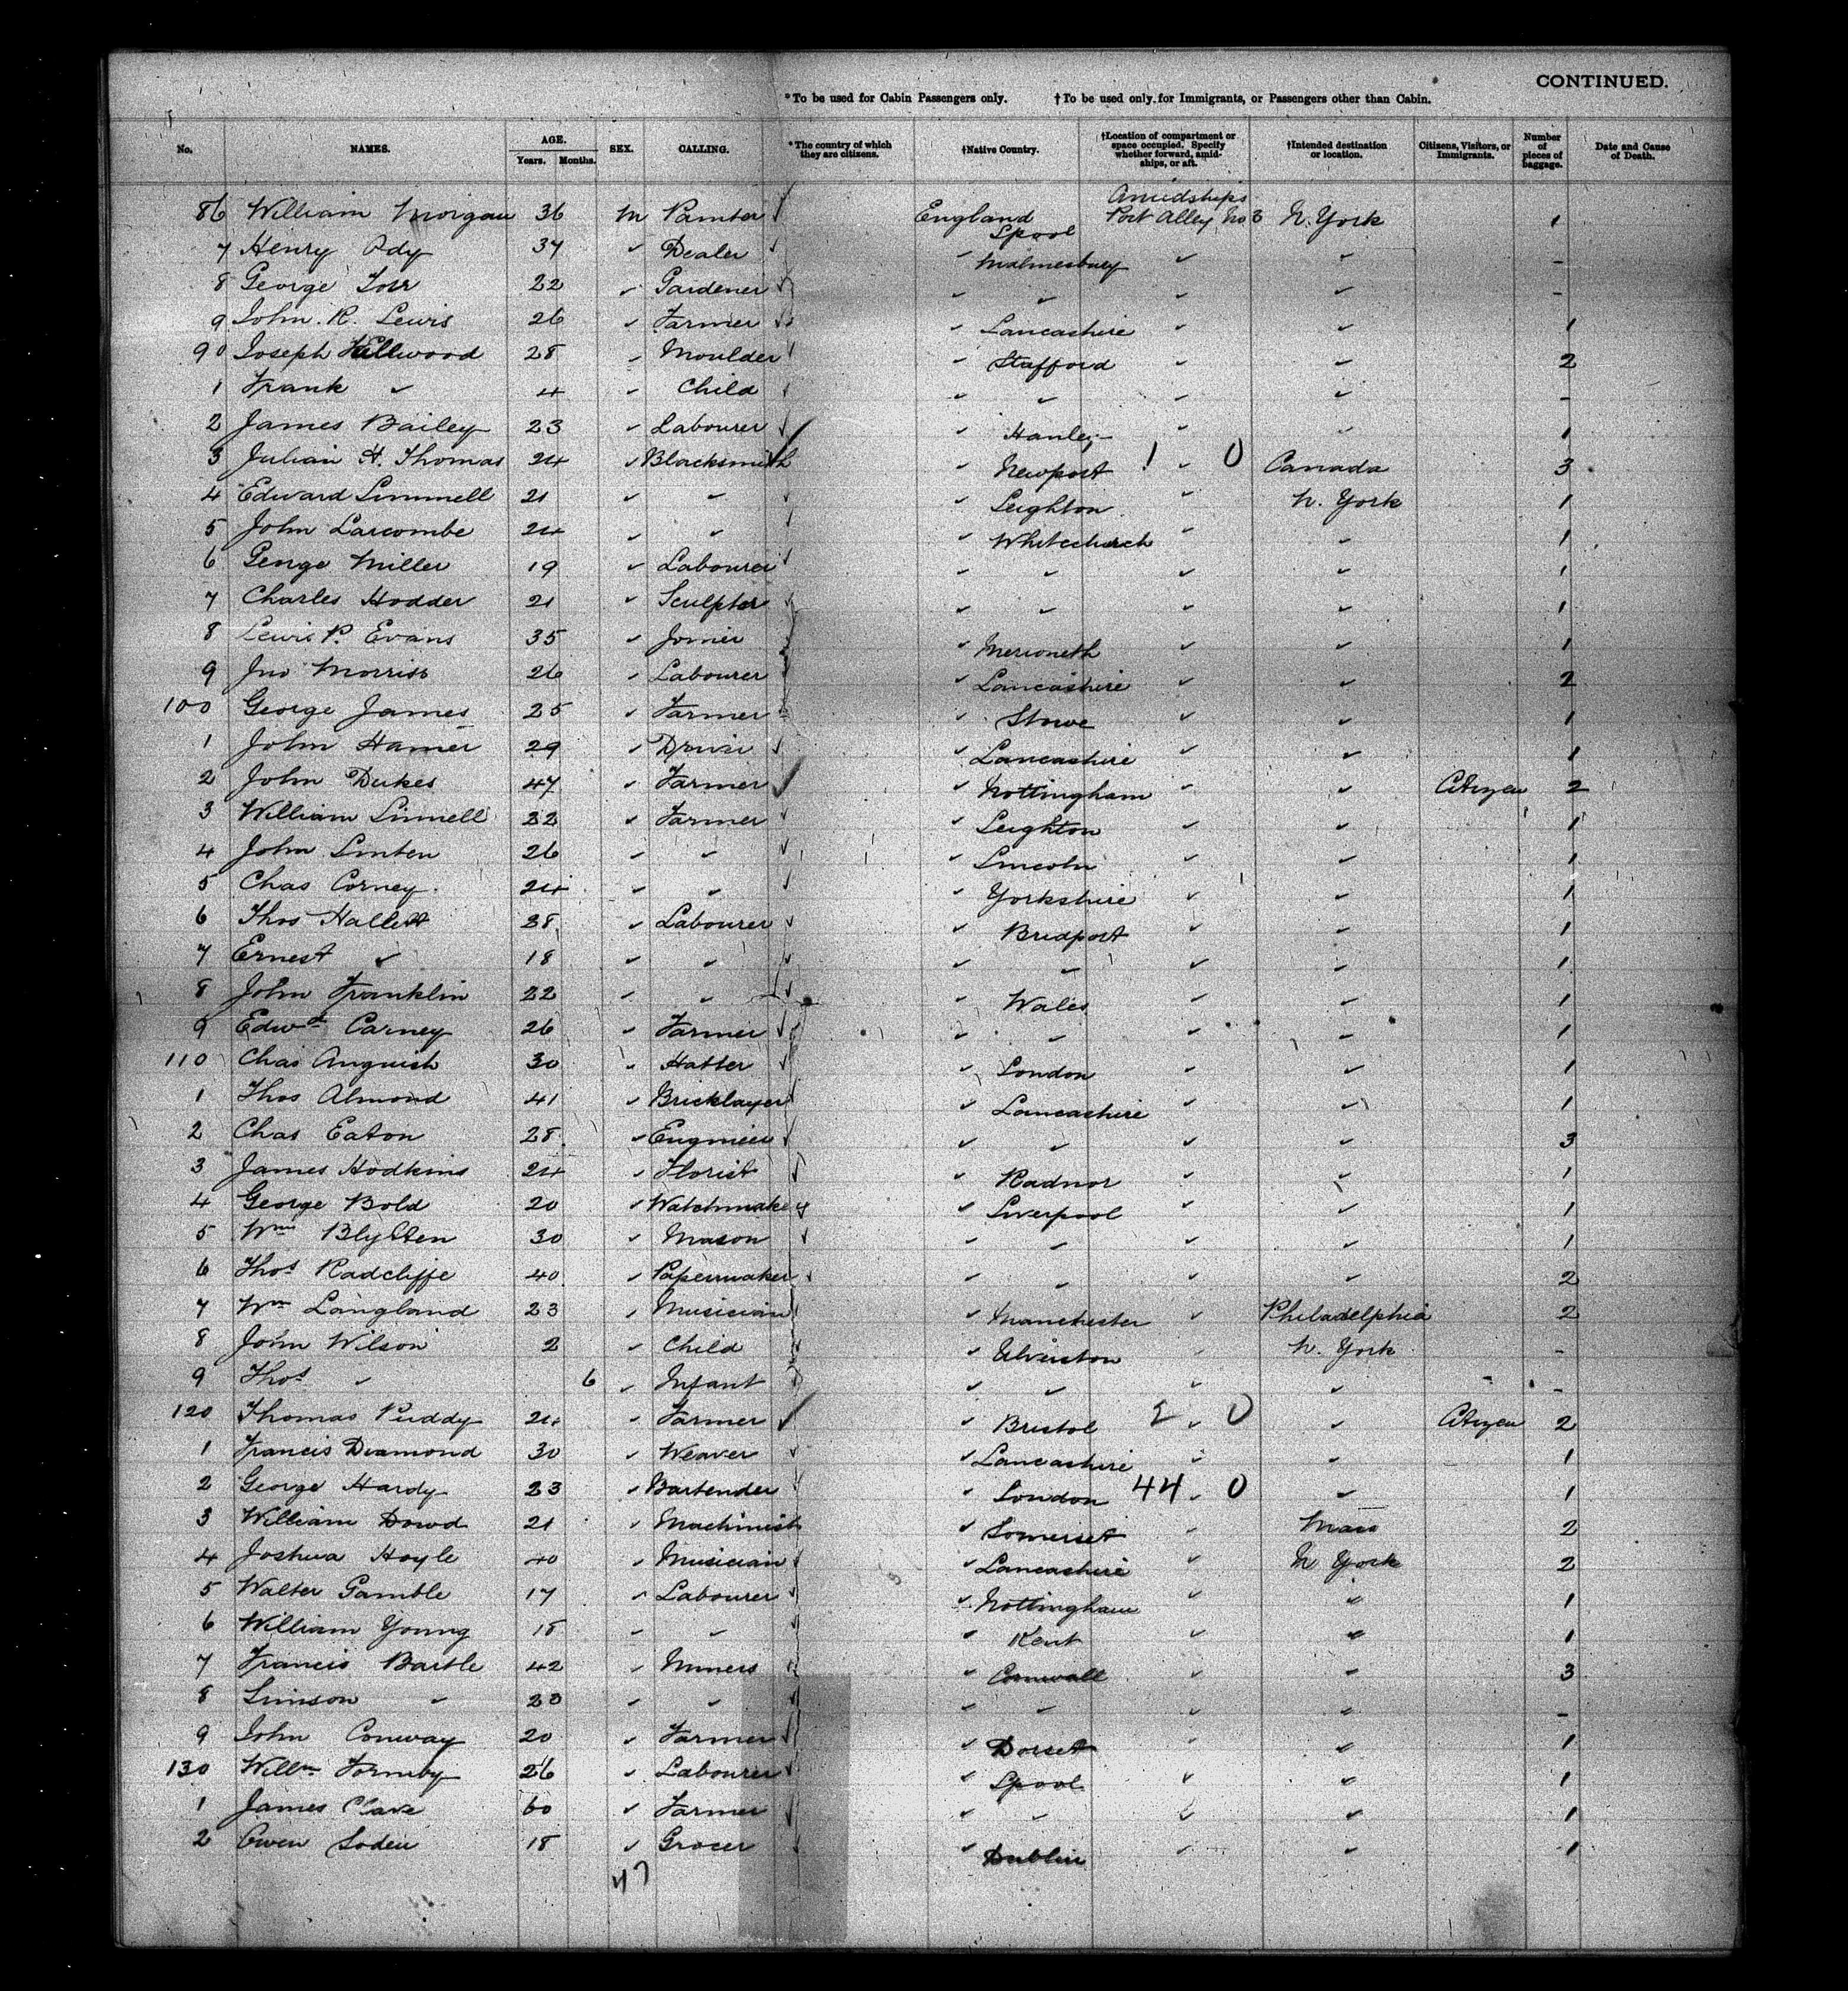 CONTINUED.
*To be used for Cabin Passengers only. †To be used only for Immigrants, or Passengers other than Cabin.
No. NAMES. AGE. Years. Months. SEX. CALLING. *The country of which they are citizens. †Native Country. †Location of compartment or space occupied. Specify whether forward, amidships, or aft. †Intended destination or location. Citizens, Visitors, or Immigrants. Number of pieces of baggage. Date and Cause of Death.
86 William Morgan 36 M Painter ✓ England Lpool Amidships Port Alley No 3 N. York 1
7 Henry Ody 37 ✓ Dealer ✓ ✓ Malmesbury ✓ ✓ -
8 George 22 ✓ Gardener ✓ ✓ ✓ ✓ ✓ -
9 John. R. Lewis 26 ✓ Farmer ✓ ✓ Lancashire ✓ ✓ 1
90 Joseph 28 ✓ Moulder ✓ ✓ Stafford ✓ ✓ 2
1 Frank ✓ 4 ✓ Child ✓ ✓ ✓ ✓ ✓ -
2 James Bailey 23 ✓ Labourer ✓ ✓ Hanley ✓ ✓ 1
3 Julian H. Thomas 24 ✓ Blacksmith ✓ ✓ Newport 1 ✓ 0 Canada 3
4 Edward Linnell 21 ✓ ✓ ✓ ✓ Leighton ✓ N. York 1
5 John Larcombe 24 ✓ ✓ ✓ ✓ Whitchurch ✓ ✓ 1
6 George Miller 19 ✓ Labourer ✓ ✓ ✓ ✓ ✓ 1
7 Charles Hodder 21 ✓ Sculptor ✓ ✓ ✓ ✓ ✓ 1
8 Lewis P. Evans 35 ✓ Joiner ✓ ✓ Merioneth ✓ ✓ 1
9 Jno Morriss 26 ✓ Labourer ✓ ✓ Lancashire ✓ ✓ 2
100 George James 25 ✓ Farmer ✓ ✓ Stowe ✓ ✓ 1
1 John Hamer 29 ✓ Driver ✓ ✓ Lancashire ✓ ✓ 1
2 John Dukes 47 ✓ Farmer ✓ ✓ Nottingham ✓ ✓ Citizen 2
3 William Linnell 22 ✓ Farmer ✓ ✓ Leighton ✓ ✓ 1
4 John Linten 26 ✓ ✓ ✓ ✓ Lincoln ✓ ✓ 1
5 Chas Corney 24 ✓ ✓ ✓ ✓ Yorkshire ✓ ✓ 1
6 Thos Hallett 38 ✓ Labourer ✓ ✓ Bridport ✓ ✓ 1
7 Ernest ✓ 18 ✓ ✓ ✓ ✓ ✓ ✓ ✓ 1
8 John Franklin 22 ✓ ✓ ✓ ✓ Wales ✓ ✓ 1
9 Edwd Carney 26 ✓ Farmer ✓ ✓ ✓ ✓ ✓ 1
110 Chas Anguish 30 ✓ Hatter ✓ ✓ London ✓ ✓ 1
1 Thos Almond 41 ✓ Bricklayer ✓ ✓ Lancashire ✓ ✓ 1
2 Chas Eaton 28 ✓ Engineer ✓ ✓ ✓ ✓ ✓ 3
3 James Hodkins 24 ✓ Florist ✓ ✓ Radnor ✓ ✓ 1
4 George Bold 20 ✓ Watchmaker ✓ ✓ Liverpool ✓ ✓ 1
5 Wm 30 ✓ Mason ✓ ✓ ✓ ✓ ✓ 1
6 Thos Radcliffe 40 ✓ Papermaker ✓ ✓ ✓ ✓ ✓ 2
7 Wm Langland 23 ✓ Musician ✓ ✓ Manchester ✓ Philadelphia 2
8 John Wilson 2 ✓ Child ✓ ✓ Ulverston ✓ N. York -
9 Thos ✓ 6 ✓ Infant ✓ ✓ ✓ ✓ ✓ -
120 Thomas Puddy 24 ✓ Farmer ✓ ✓ Bristol 2 ✓ 0 ✓ Citizen 2
1 Francis Diamond 30 ✓ Weaver ✓ ✓ Lancashire ✓ ✓ 1
2 George Hardy 23 ✓ Bartender ✓ ✓ London 44 ✓ 0 ✓ 1
3 William Dowd 21 ✓ Machinist ✓ Somerset ✓ Mass 2
4 Joshua Hoyle 40 ✓ Musician ✓ ✓ Lancashire ✓ N York 2
5 Walter Gamble 17 ✓ Labourer ✓ ✓ Nottingham ✓ ✓ 1
6 William Young 18 ✓ ✓ ✓ ✓ Kent ✓ ✓ 1
7 Francis Bartle 42 ✓ Miners ✓ ✓ Cornwall ✓ ✓ 3
8 Simson ✓ 20 ✓ ✓ ✓ ✓ ✓ ✓ ✓ -
9 John Conway 20 ✓ Farmer ✓ ✓ Dorset ✓ ✓ 1
130 Willm Formby 26 ✓ Labourer ✓ ✓ Lpool ✓ ✓ 1
1 James Clare 60 ✓ Farmer ✓ ✓ ✓ ✓ ✓ 1
2 Owen Soden 18 ✓ Grocer ✓ ✓ Dublin ✓ ✓ 1
47